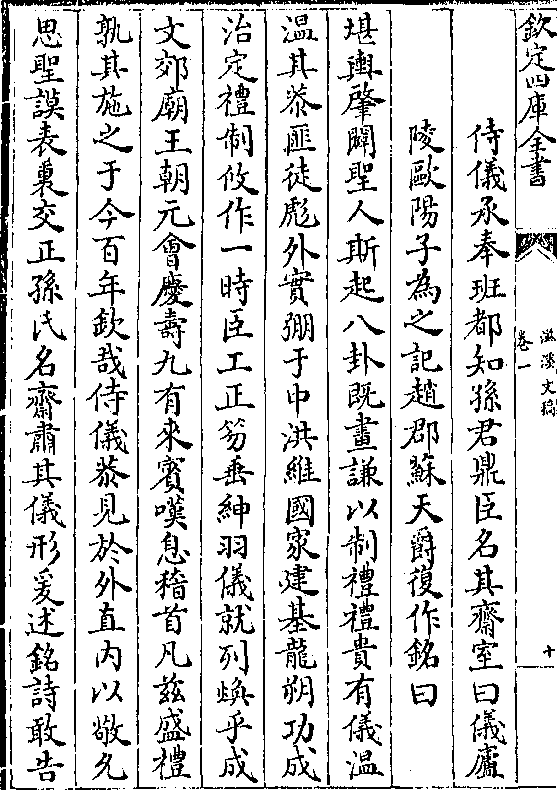 欽定四庫全書
滋溪文稿
卷一
十
侍儀承奉班都知孫君鼎臣名其齋室曰儀廬
陵歐陽子為之記趙郡蘇天爵復作銘曰
堪輿肇闢聖人斯起八卦既畫謙以制禮禮貴有儀溫
溫其恭匪徒彪外實弸于中洪維國家建基龍朔功成
治定禮制攸作一時臣工正笏垂紳羽儀就列煥乎成
文郊廟王朝元會慶壽九有來賓嘆息稽首凡茲盛禮
孰其施之于今百年欽哉侍儀恭見於外直內以敬允
思聖謨表裏交正孫氏名齋肅其儀形爰述銘詩敢告